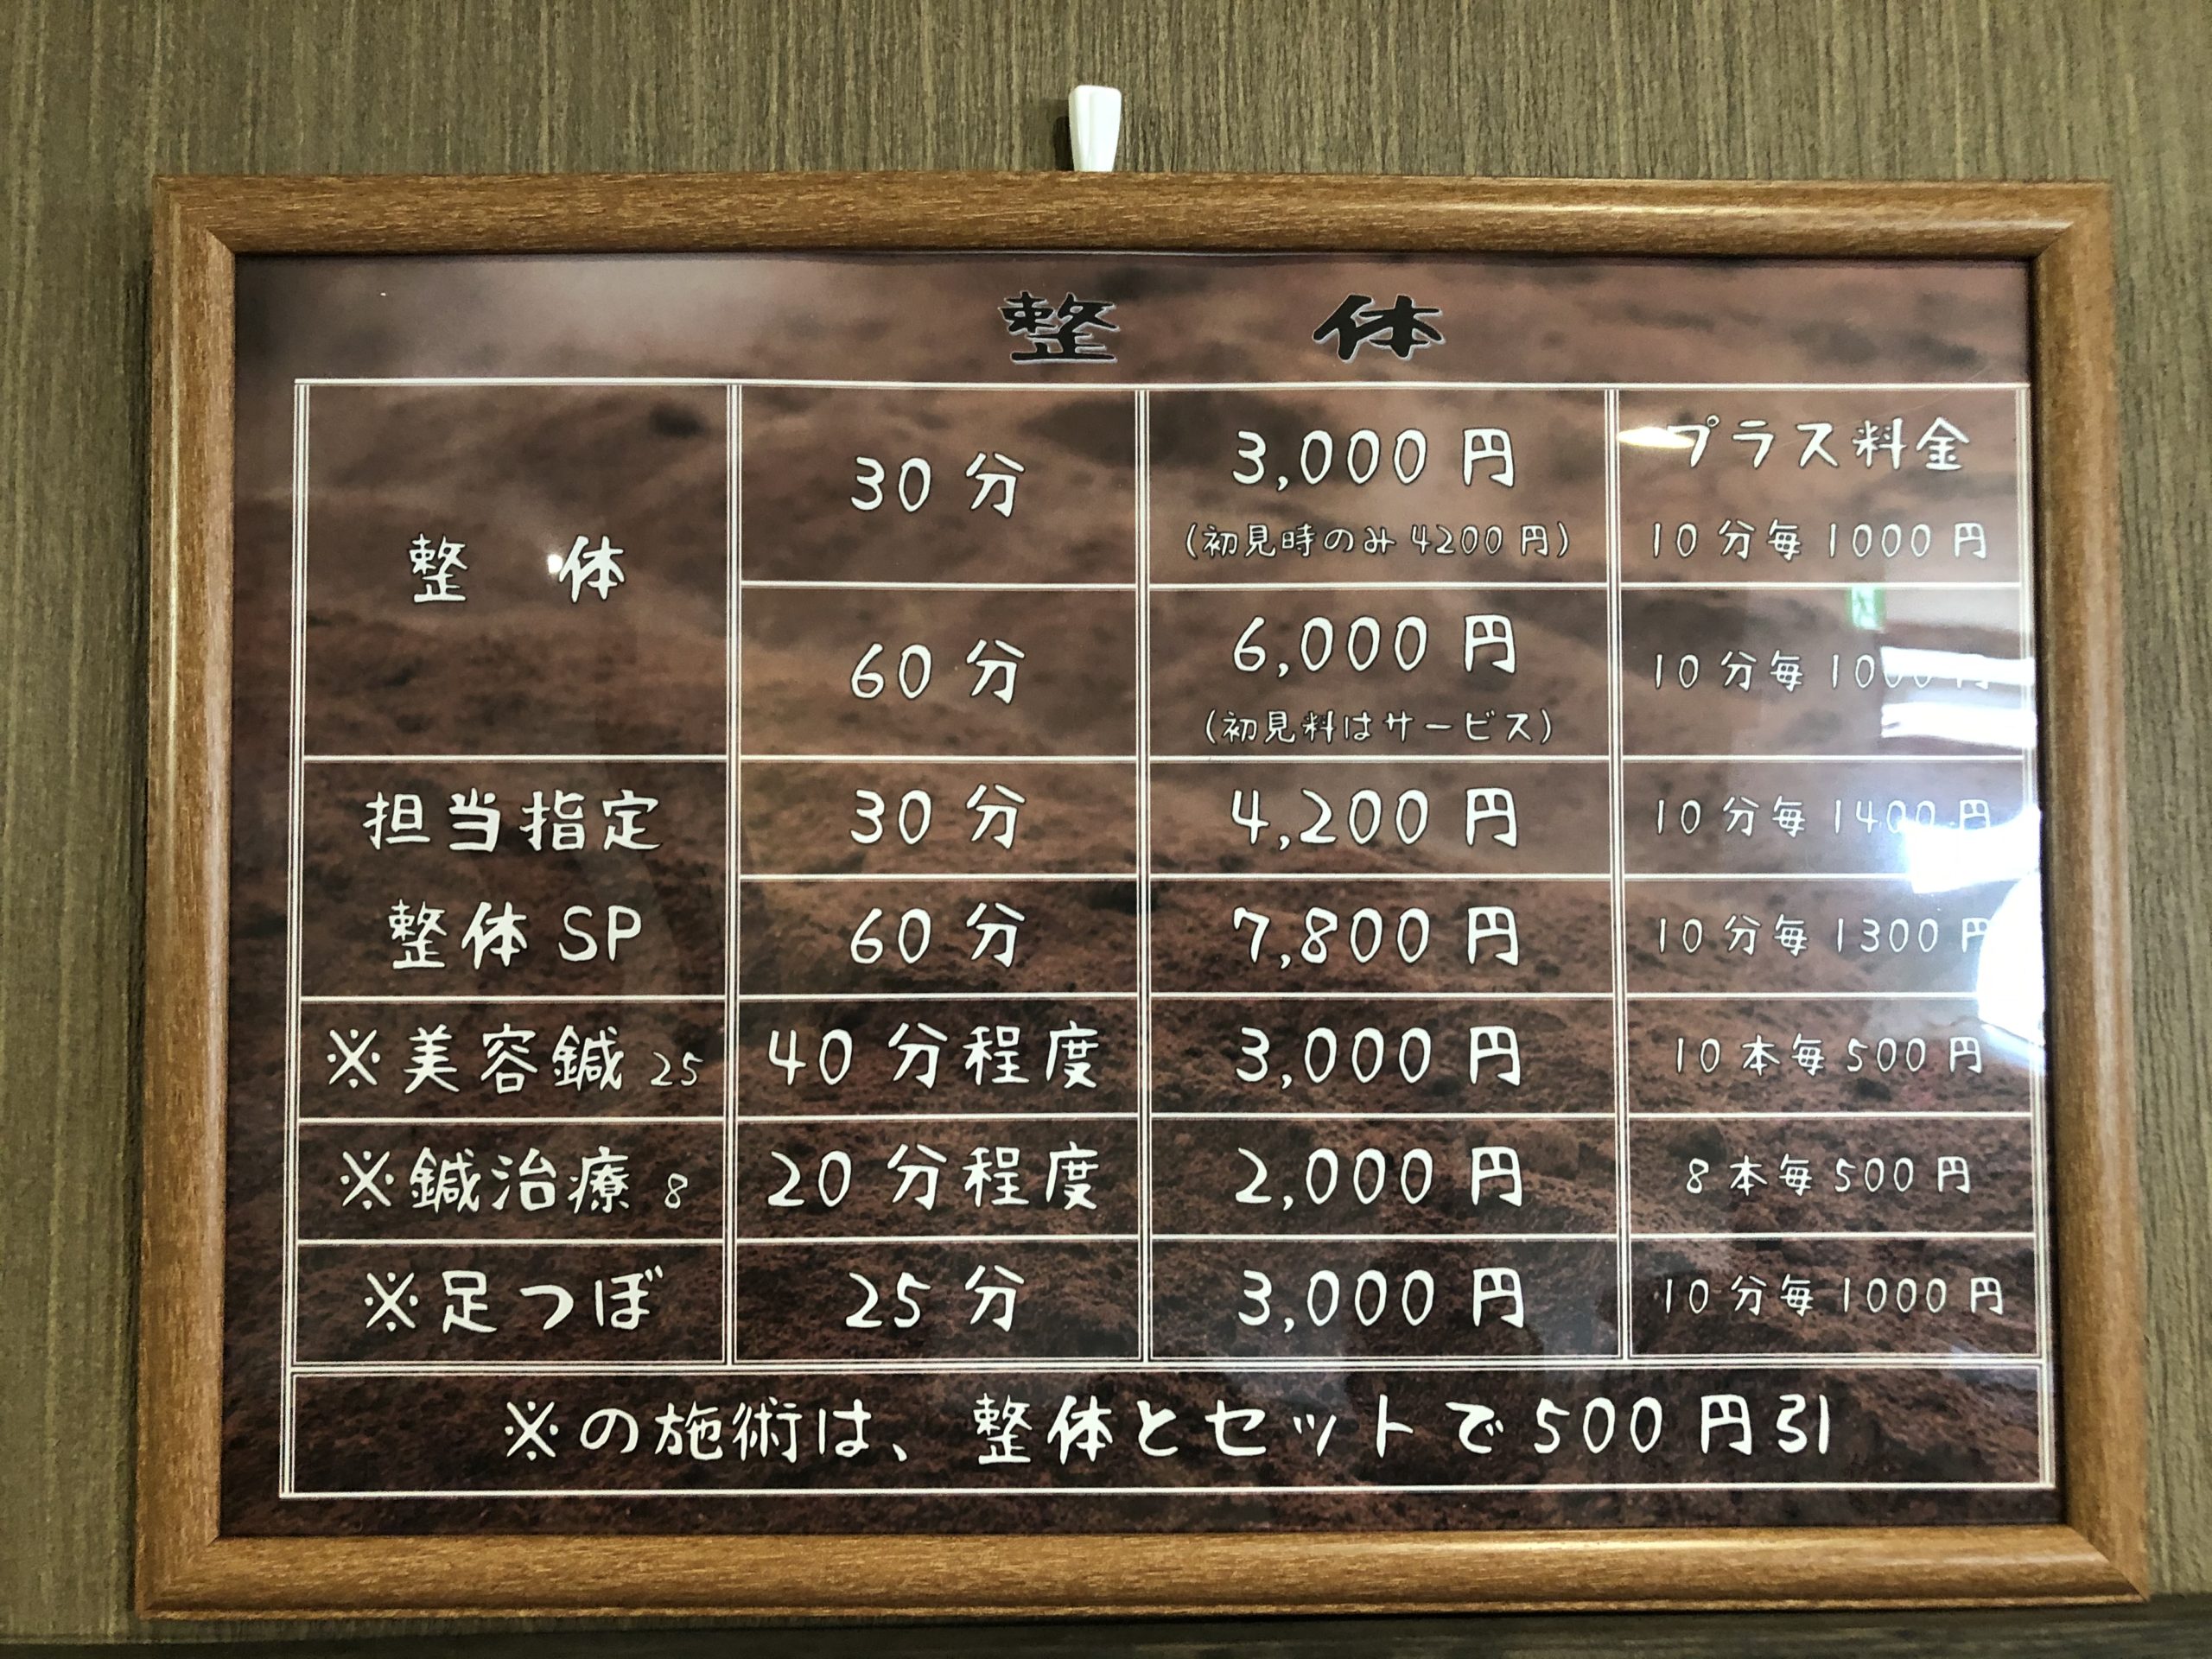 整 体
整 体
30 分
3,000 円
(初見時のみ 4200 円)
プラス料金
10 分毎 1000 円
60 分
6,000 円
(初見料はサービス)
10 分毎 1000 円
担当指定
整体 SP
30 分
4,200 円
10 分毎 1400 円
60 分
7,800 円
10 分毎 1300 円
※美容鍼 25
40 分程度
3,000 円
10 本毎 500 円
※鍼治療 8
20 分程度
2,000 円
8 本毎 500 円
※足つぼ
25 分
3,000 円
10 分毎 1000 円
※の施術は、整体とセットで500 円引